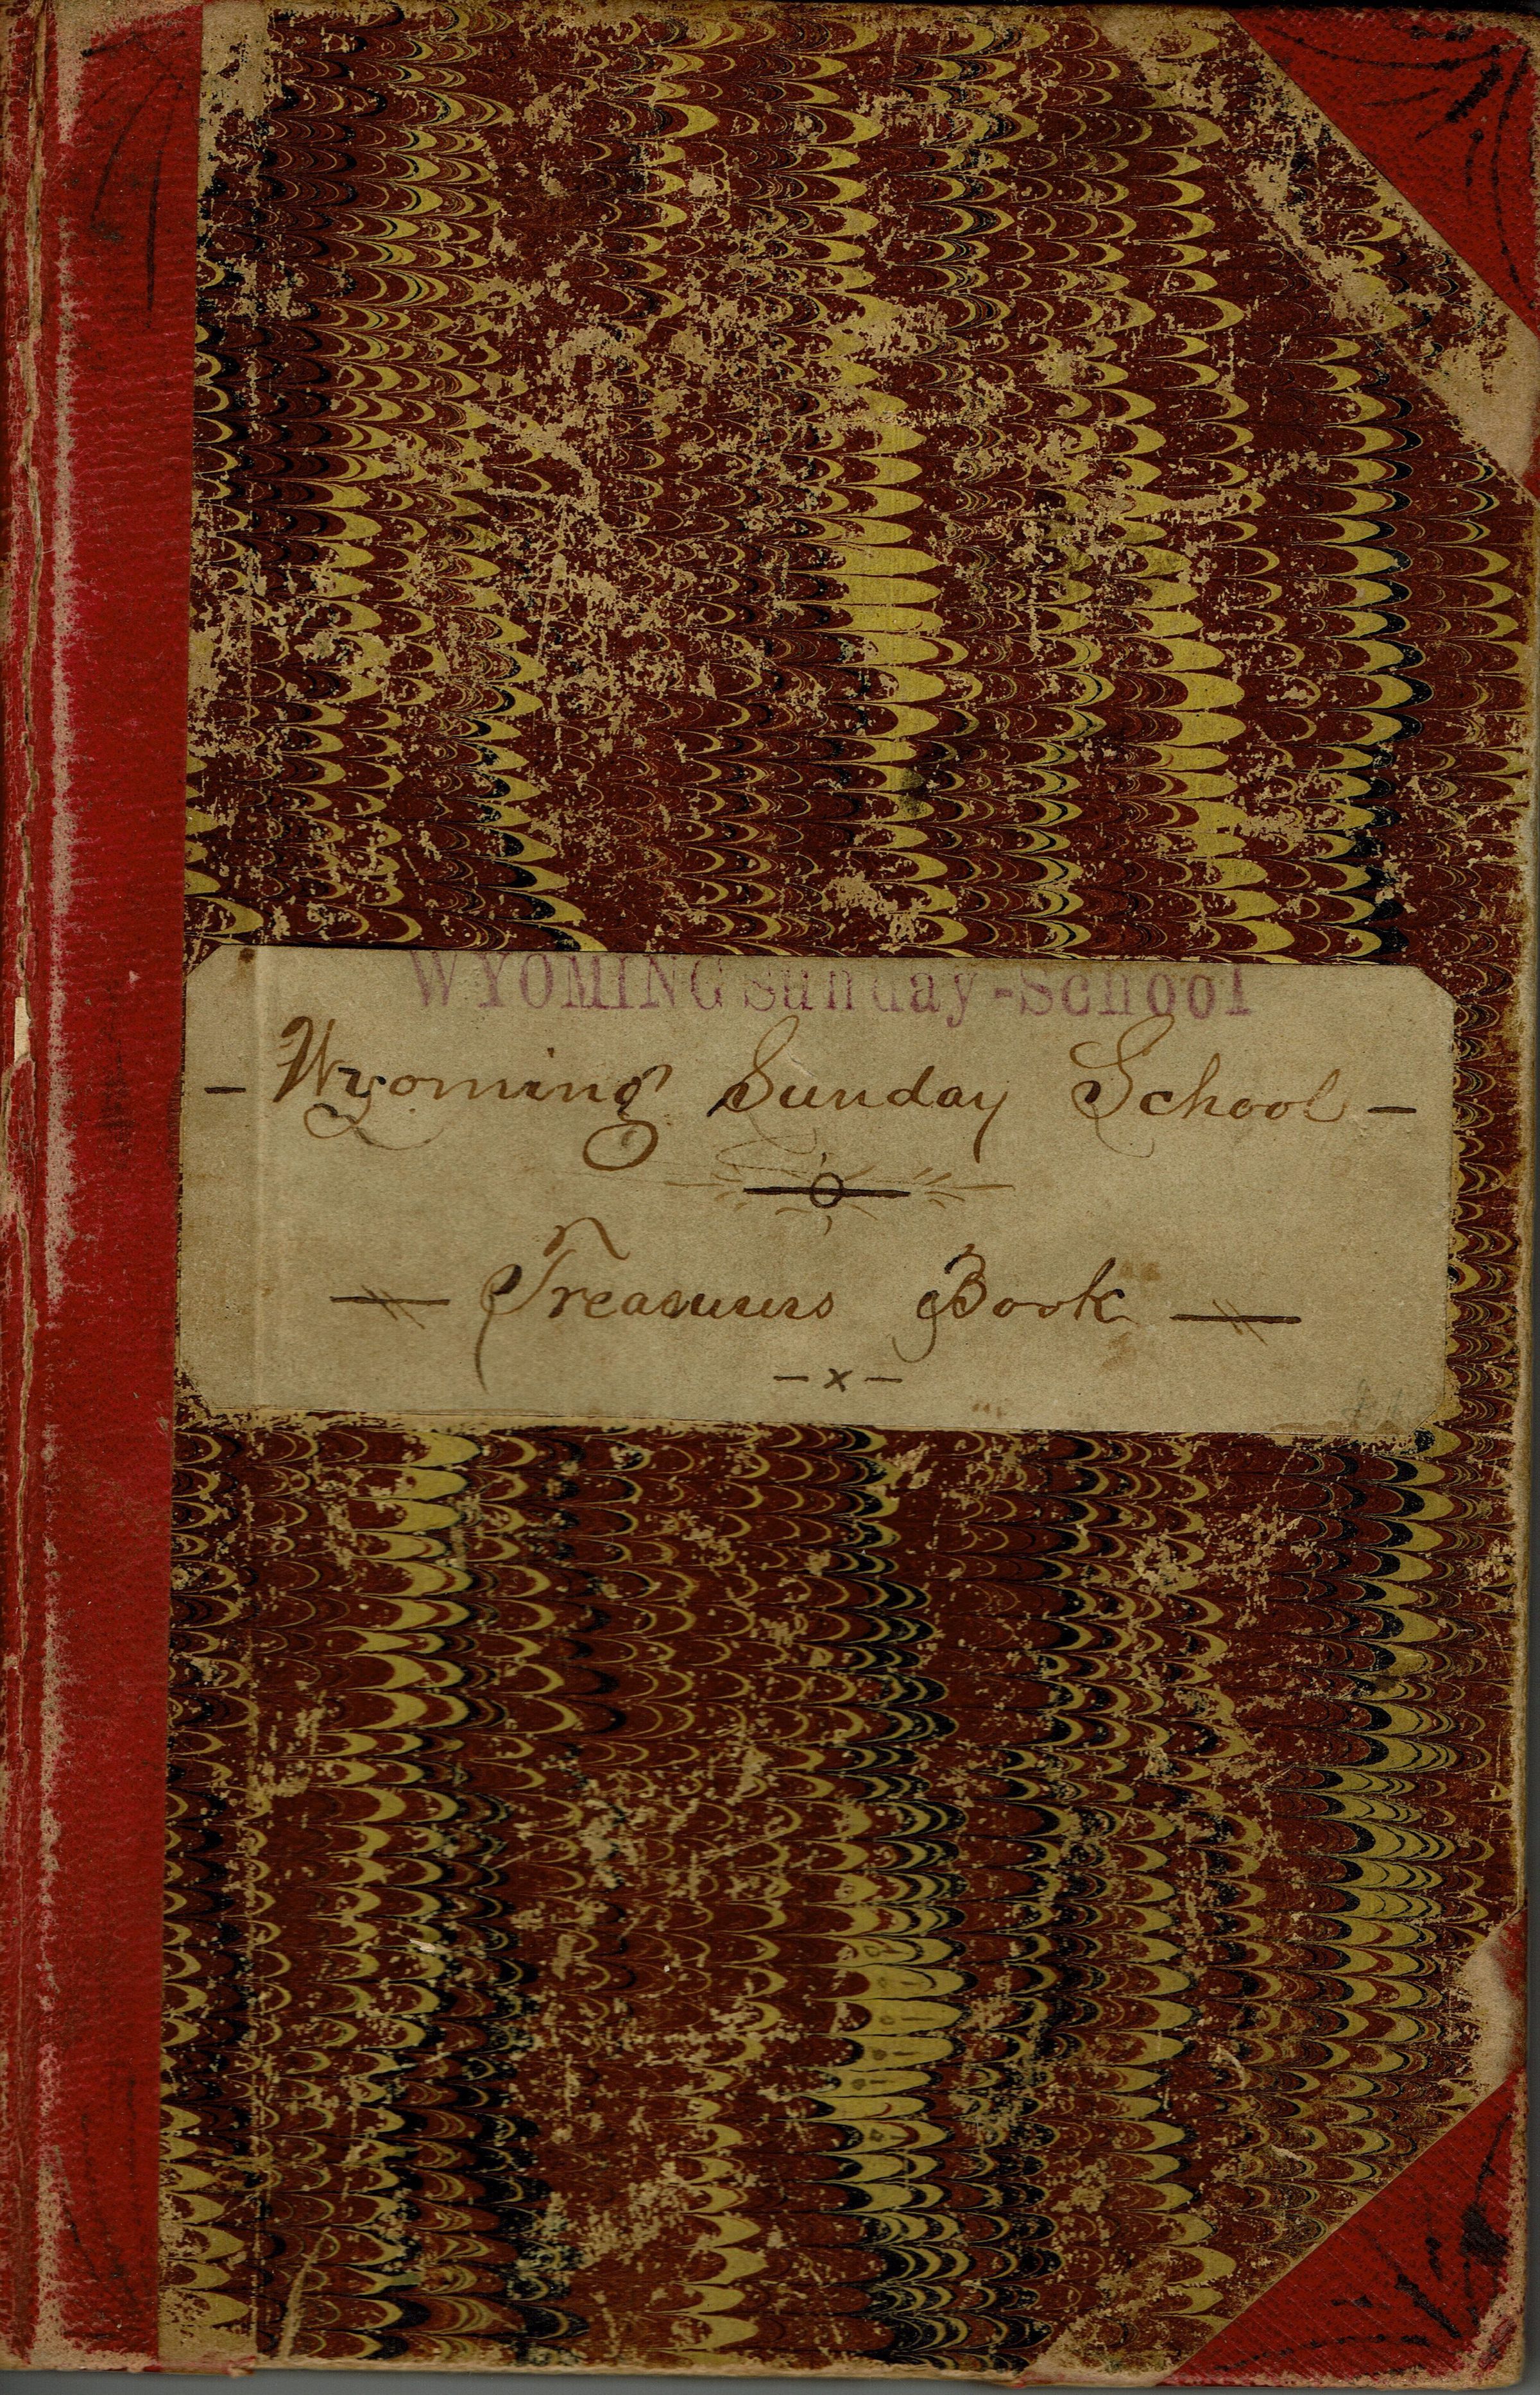 WYOMING Sunday-School
- Wyoming Sunday School -
Treasurers Book
- x -